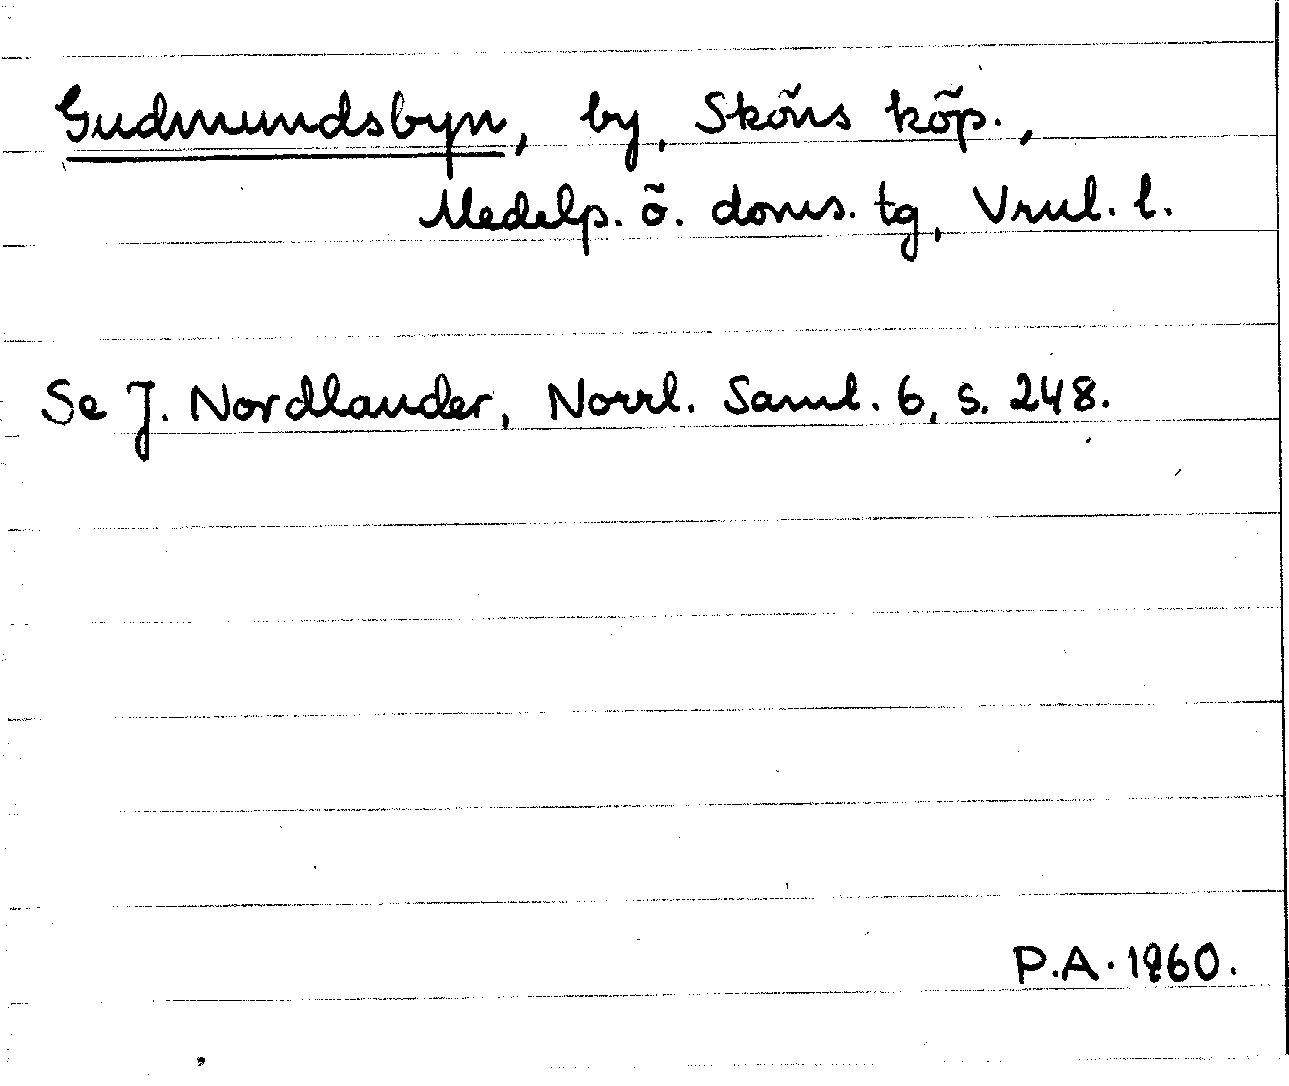 Gudmundsbyn, by, Sköns köp.,
Medelp. ö. doms. tg, Vnl. l.
Se J. Nordlander, Norrl. Saml. 6, s. 248.
P.A. 1960.